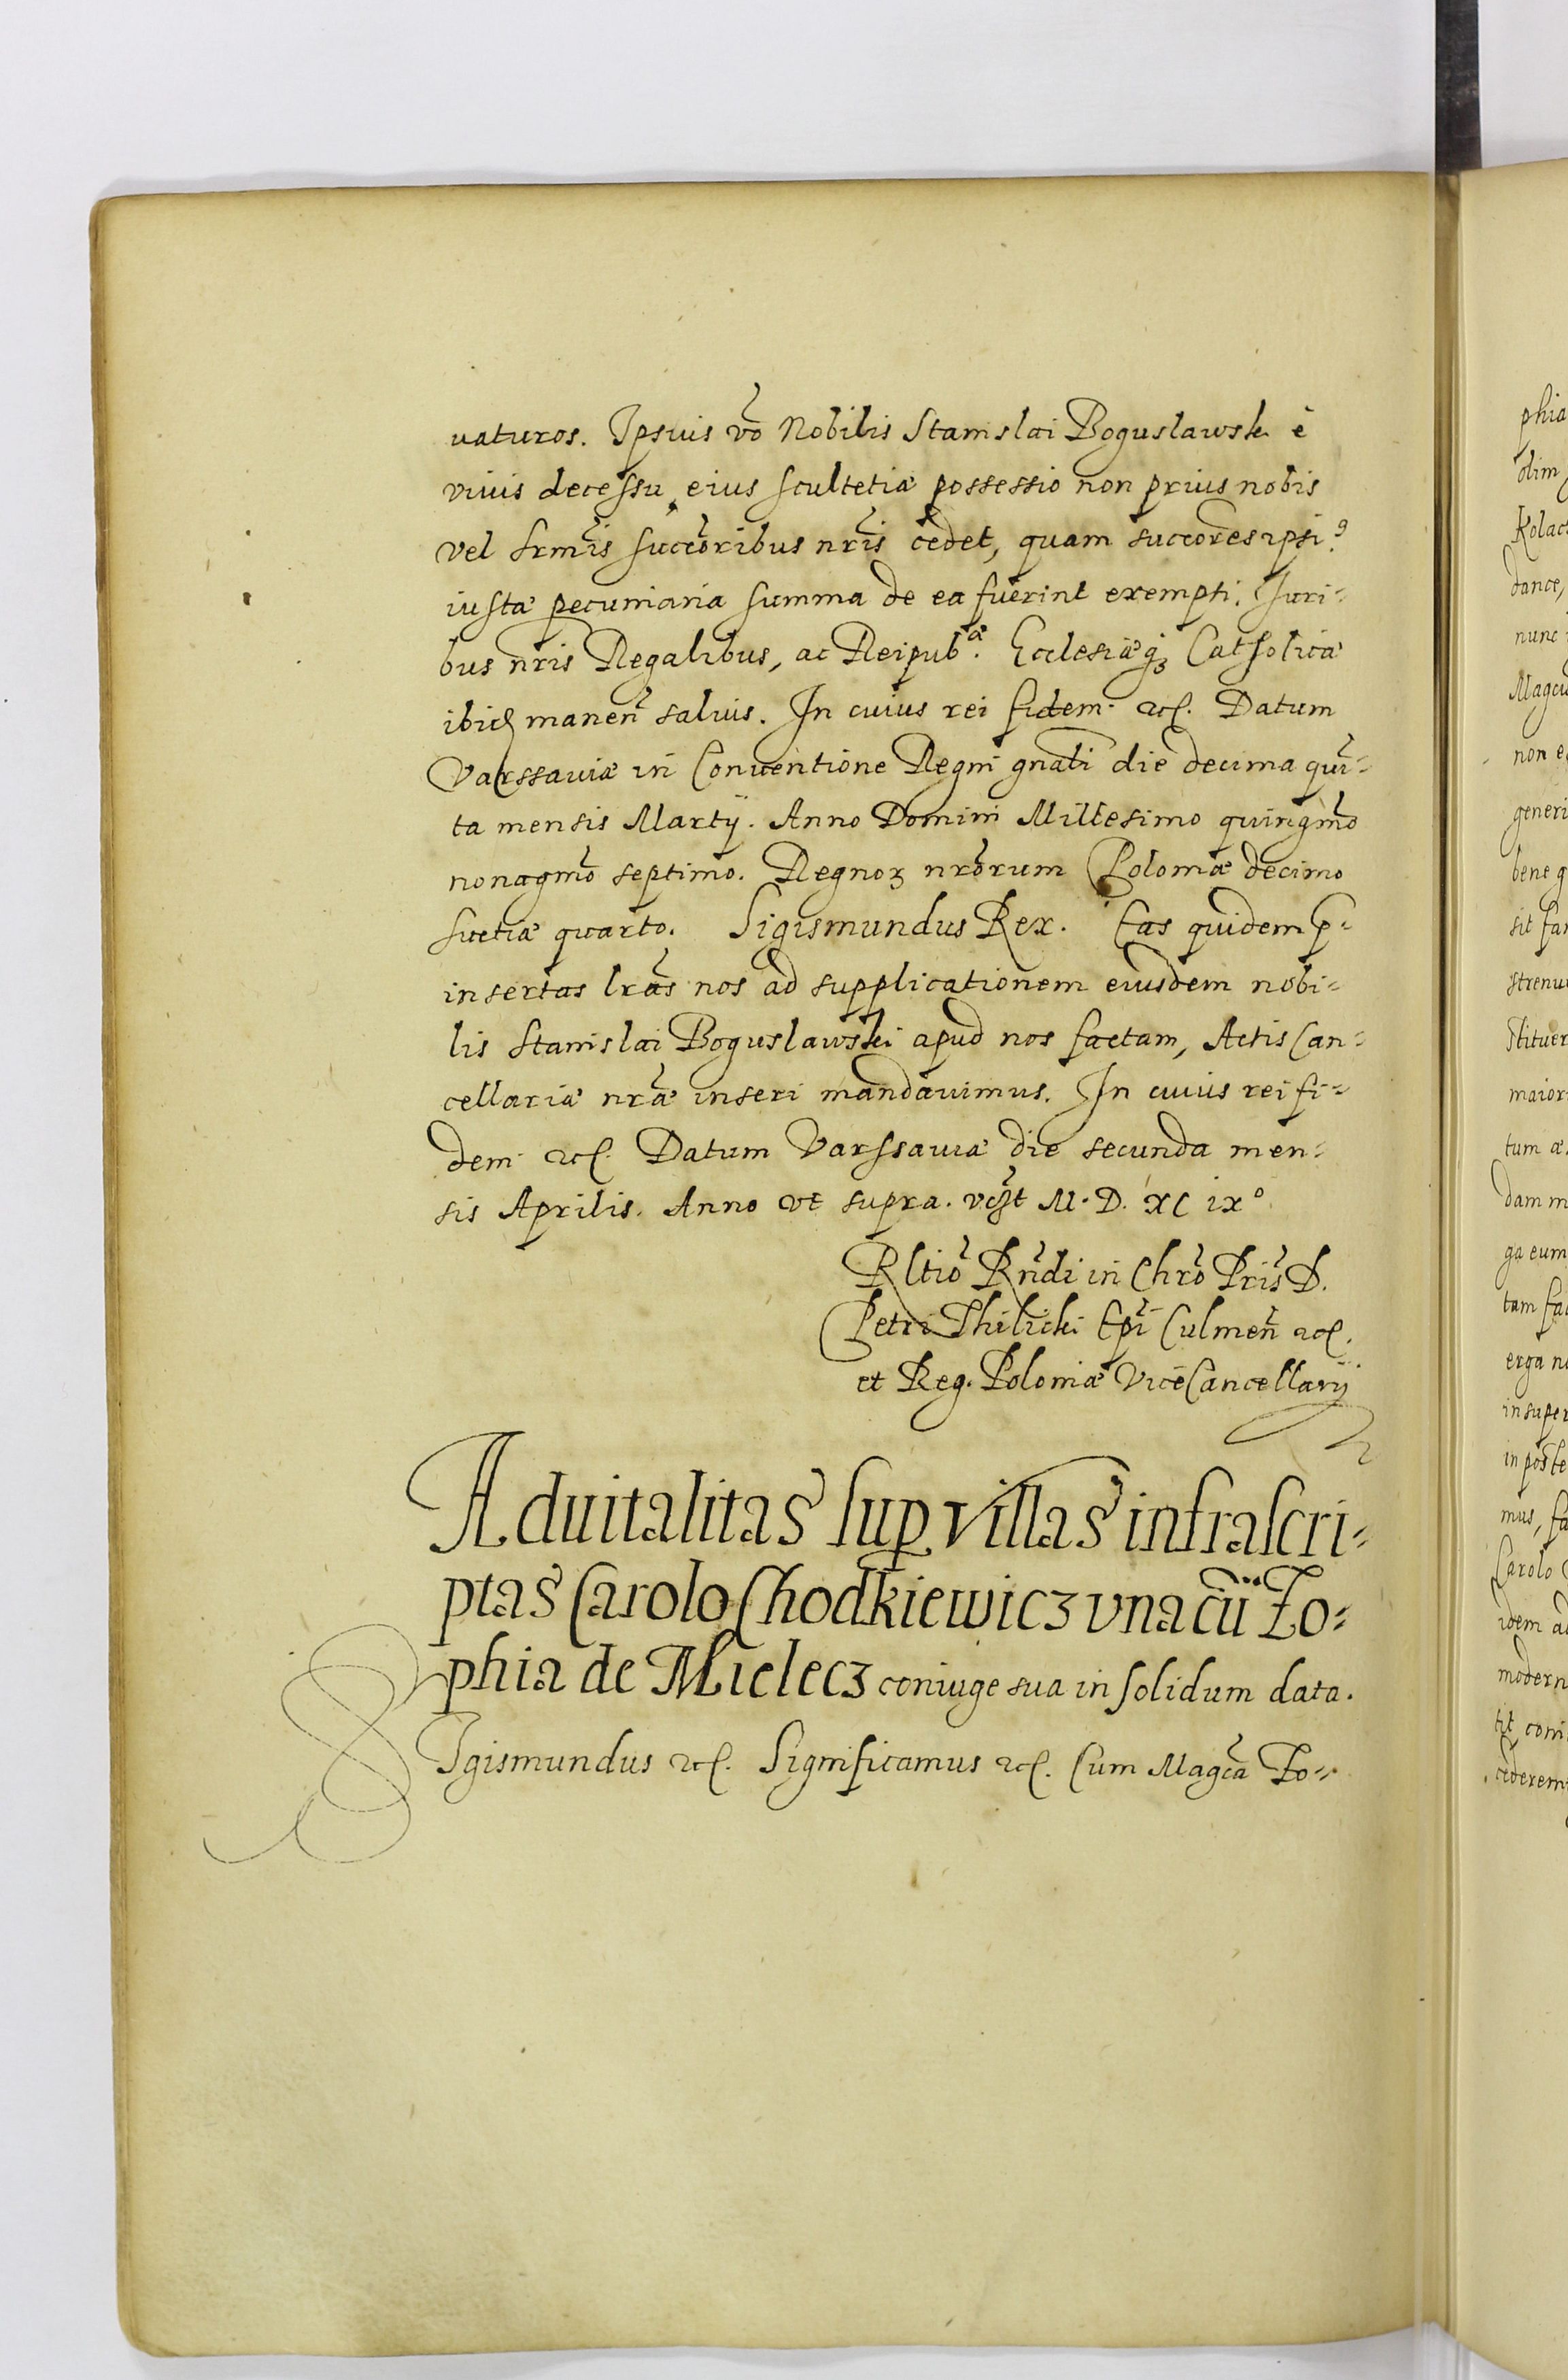 uaturos. Ipsius vō Nobilis Stanislai Boguslawski è
viuis decessu, eius scultetiæ possessio non prius nobis
vel srmīs succōribus nrīs cedet, quam succōres ipsi⁹
iusta pecuniaria summa de ea fuerint exempti. Iuri-
bus nr̄is Regalibus, ac Reipub.æ Ecclesiæqȝ Catholicæ
ibid manen̄ saluis. In cuius rei fidem ꝛc. Datum
Varssauiæ in Conuentione Regni gnali die decima quī-
ta mensis Martij. Anno Domini Millesimo quingmō
nonagmō septimo. Regnoꝝ nrōrum Poloniæ decimo
Suetiæ quarto. Sigismundus Rex. Eas quidem p-
insertas lrās nos ad supplicationem eiusdem nobi-
lis Stanislai Boguslawski apud nos factam, Actis Can-
cellariæ nrǣ inseri mandauimus. In cuius rei fi-
dem ꝛc. Datum Varssauiæ die secunda men-
sis Aprilis. Anno vt supra. M. D. XC ix°
Rltiō Rn̄di in Chrō Prīs D.
Petri Thilicki Epī Culmen̄ ꝛc.
et Reg. Poloniæ ViceCancellarij
Aduitalitas suꝑ villas infrascri-
ptas Carolo Chodkiewicz vna cū Zo-
phia de Mielecz coniuge sua in solidum data.
SIgismundus ꝛc. Significamus ꝛc. Cum Magcā Zo-
phia
olim
Kolac
dance,
nunc
non e
generi
bene q
sit fa
strenu
stituer
maior
tum æ
dam m
ga eum
tam fa
erga n
insuper
in poste
mus, fa
Carolo
idem a
modern
tit coni
cederem